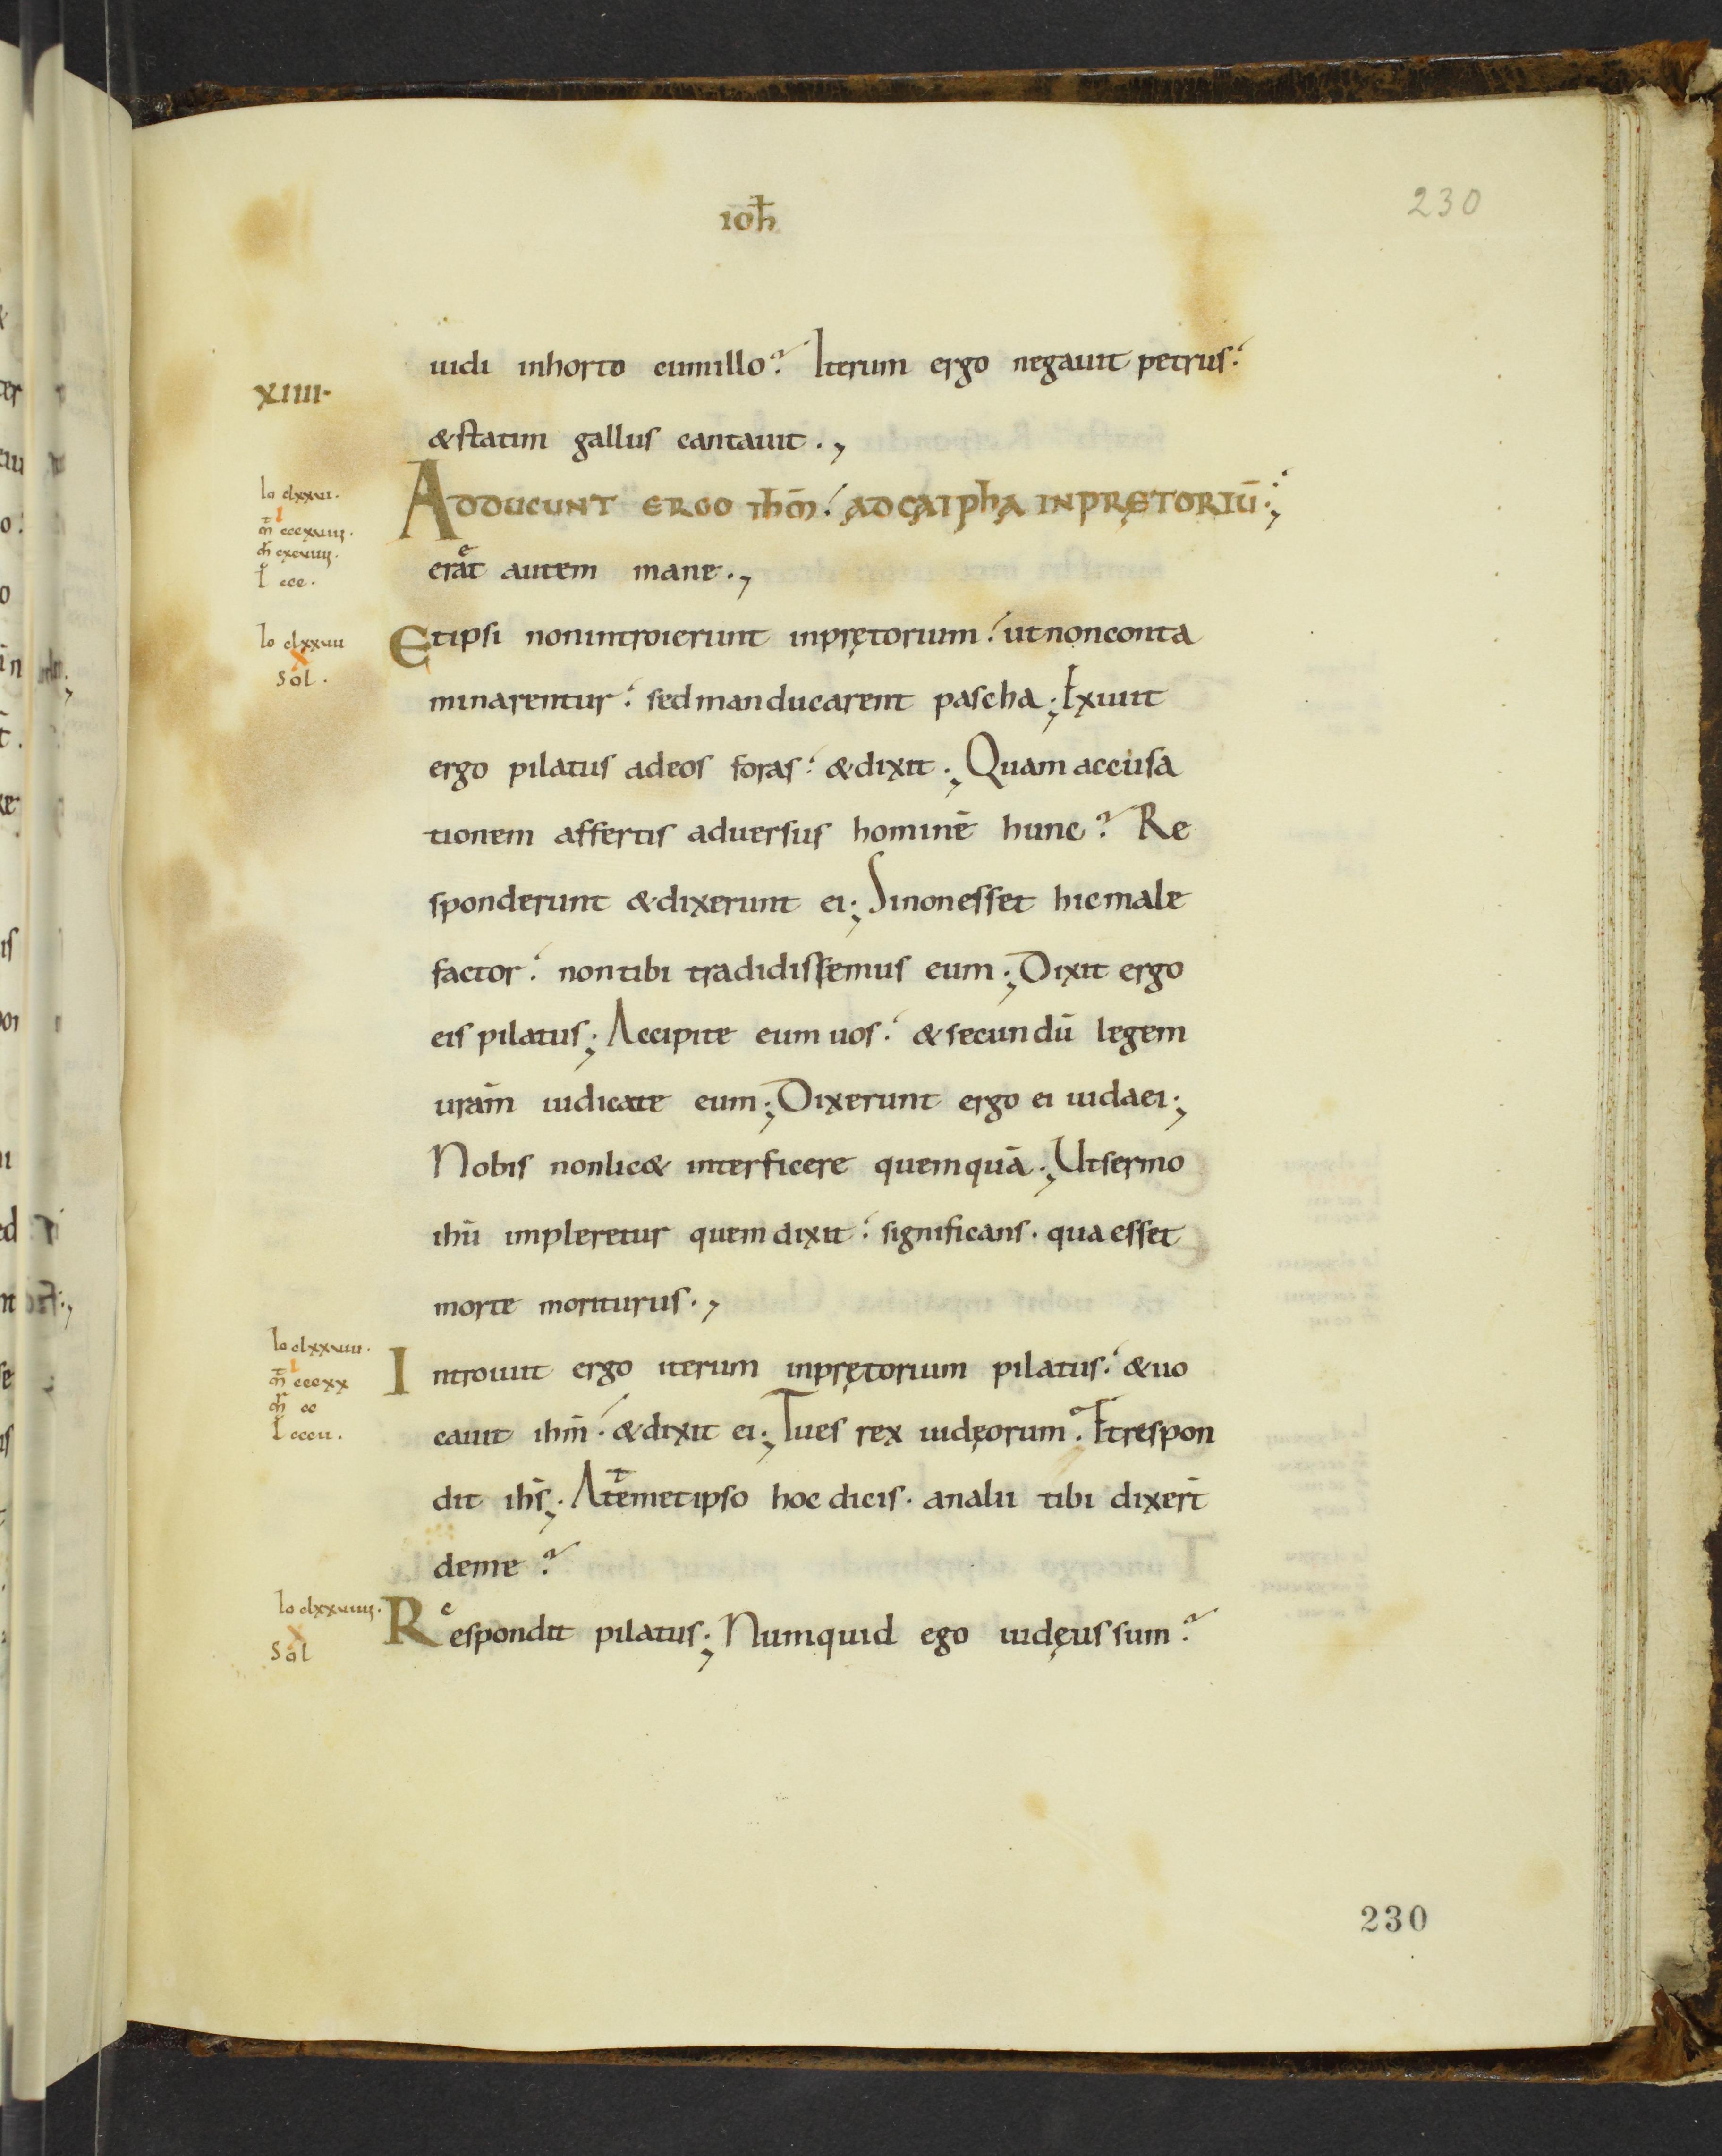 ioh̄
230
uidi inhorto cumillo? Iterum ergo negauit petrus.
XIIII.
&statim gallus cantauit.,
Io clxxvii.
ADDUCUNT ERGO ihm̄. ADCAIPhA INPRĘTORIŪ.,
i
m̄ cccxuiiii.
m̄r cxcuiiii.
erat autem mane.,
l ccc.
Io clxxuii
Etipsi nonintroierunt inprętorium. utnonconta
x
sol.
minarentur. sedmanducarent pascha; Exiuit
ergo pilatus adeos foras. &dixit; Quam accusa
tionem affertis aduersus hominē hunc? Re
sponderunt &dixerunt ei; Sinonesset hicmale
factor. nontibi tradidissemus eum; Dixit ergo
eis pilatus; Accipite eum uos. & secundū legem
uram̄ iudicate eum; Dixerunt ergo ei iudaei;
Nobis nonlic& interficere quemquā; Utsermo
ihū impleretur quem dixit. significans. qua esset
morte moriturus.,
Io clxxuiii.
Introiuit ergo iterum inprętorium pilatus. &uo
i
m̄ cccxx
m̄r cc
cauit ihm̄. &dixit ei; Tues rex iudęorum? Etrespon
l cccii.
dit ihs̄; Atemetipso hoc dicis. analii tibi dixert̄
deme?
Io clxxuiiii.
Respondit pilatus; Numquid ego iudęus sum?
x
sol
230